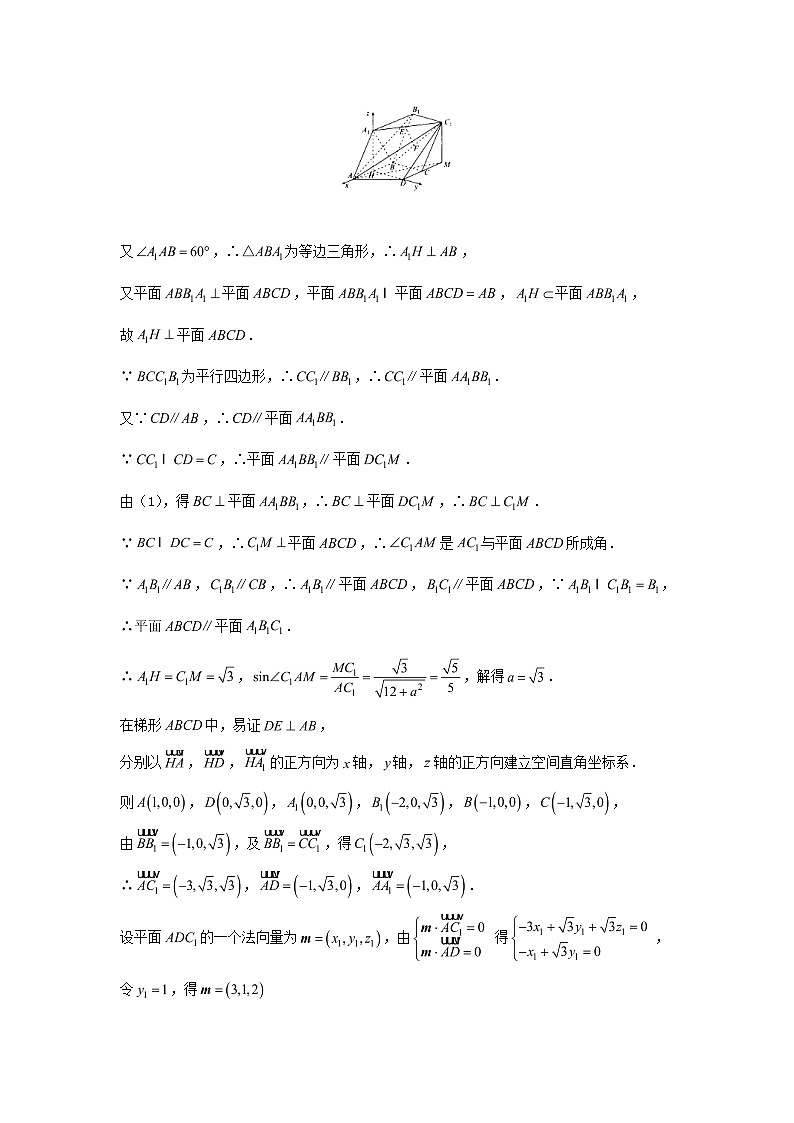 z
B₁
C₁
A₁
E
F
B
M
A
H
C
D
x
y
又∠A₁AB=60°,∴△ABA₁为等边三角形,∴A₁H⊥AB,
又平面ABB₁A₁⊥平面ABCD,平面ABB₁A₁ I 平面ABCD=AB,A₁H⊂平面ABB₁A₁,
故A₁H⊥平面ABCD.
∵BCC₁B₁为平行四边形,∴CC₁∥BB₁,∴CC₁∥平面AA₁BB₁.
又∵CD∥AB,∴CD∥平面AA₁BB₁.
∵CC₁ I CD=C,∴平面AA₁BB₁∥平面DC₁M.
由(1),得BC⊥平面AA₁BB₁,∴BC⊥平面DC₁M,∴BC⊥C₁M.
∵BC I DC=C,∴C₁M⊥平面ABCD,∴∠C₁AM是AC₁与平面ABCD所成角.
∵A₁B₁∥AB,C₁B₁∥CB,∴A₁B₁∥平面ABCD,B₁C₁∥平面ABCD,∵A₁B₁ I C₁B₁=B₁,
∴平面ABCD∥平面A₁B₁C₁.
∴A₁H=C₁M=√3,sin∠C₁AM=MC₁/AC₁=√3/√(12+a²)=√5/5,解得a=√3.
在梯形ABCD中,易证DE⊥AB,
分别以HA,HD,HA₁的正方向为x轴,y轴,z轴的正方向建立空间直角坐标系.
则A(1,0,0),D(0,√3,0),A₁(0,0,√3),B₁(-2,0,√3),B(-1,0,0),C(-1,√3,0),
由BB₁=(-1,0,√3),及BB₁=CC₁,得C₁(-2,√3,√3),
∴AC₁=(-3,√3,√3),AD=(-1,√3,0),AA₁=(-1,0,√3).
设平面ADC₁的一个法向量为m=(x₁,y₁,z₁),由{m·AC₁=0 m·AD=0 得{-3x₁+√3y₁+√3z₁=0 -x₁+√3y₁=0,
令y₁=1,得m=(3,1,2)